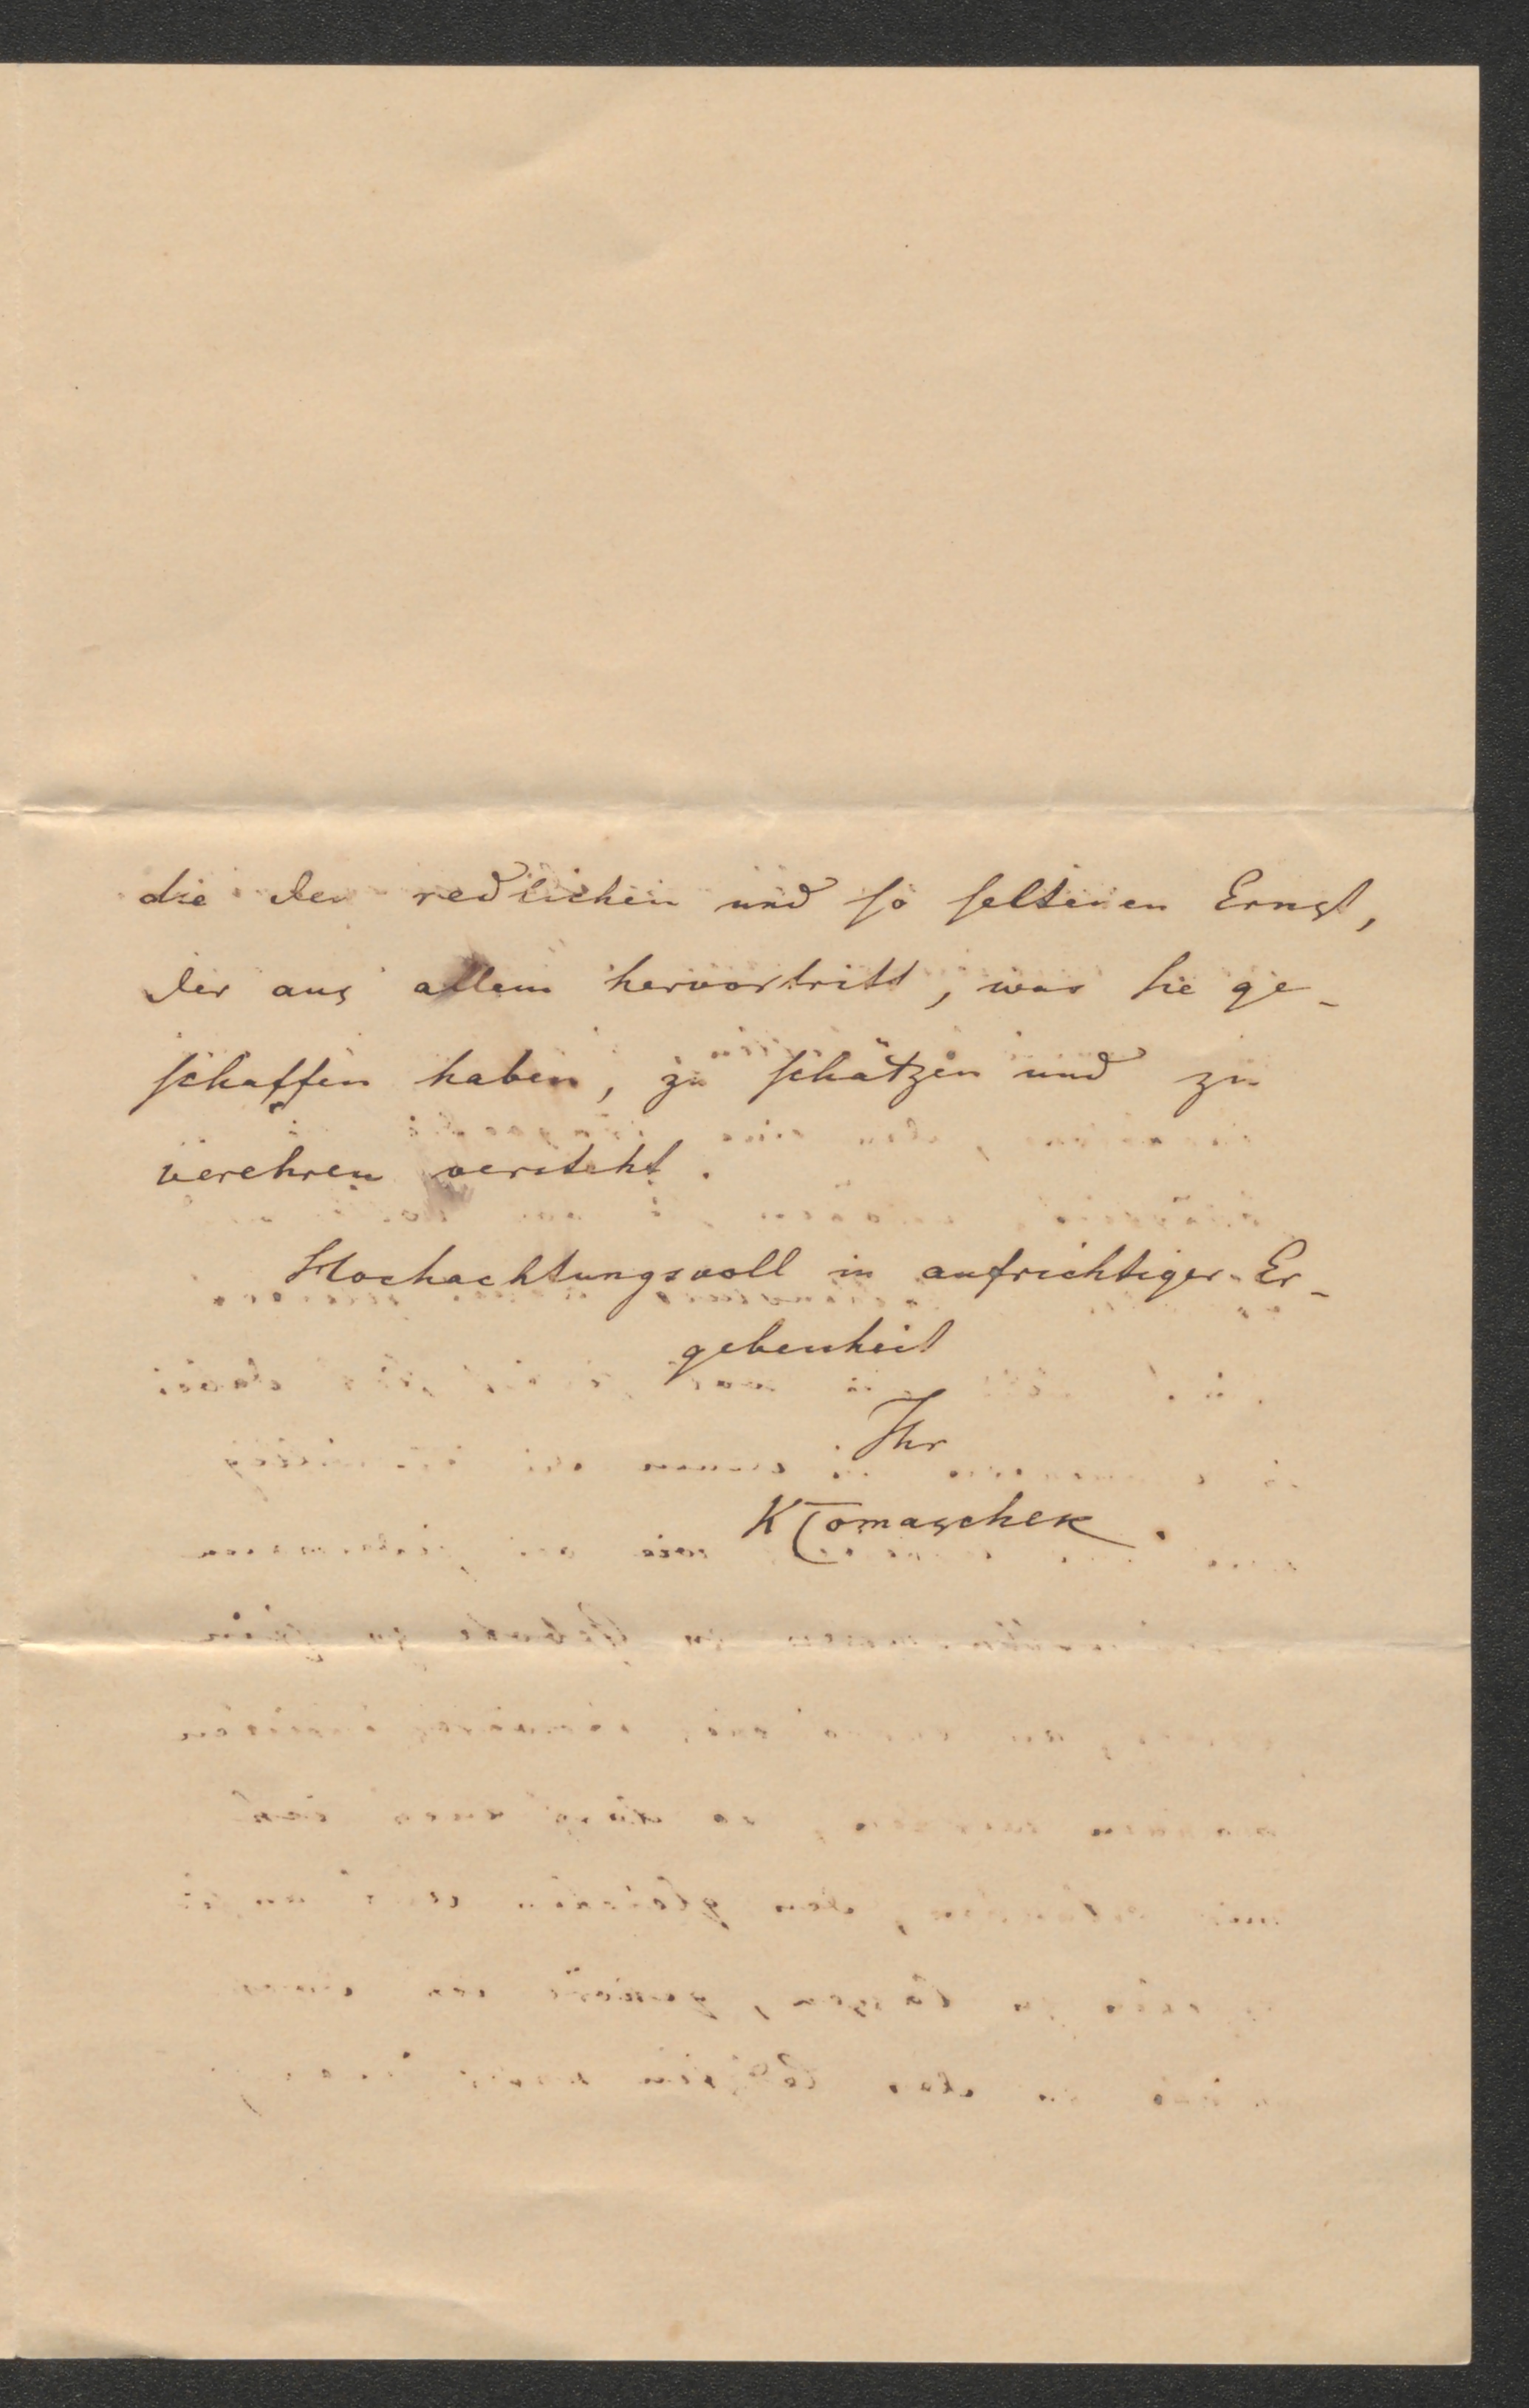 die den redlichen und so seltenen Ernst,
der aus allem hervortritt, was Sie ge-
schaffen haben, zu schätzen und zu
verehren versteht.
Hochachtungsvoll in aufrichtiger Er-
gebenheit
Ihr
KTomaschek.